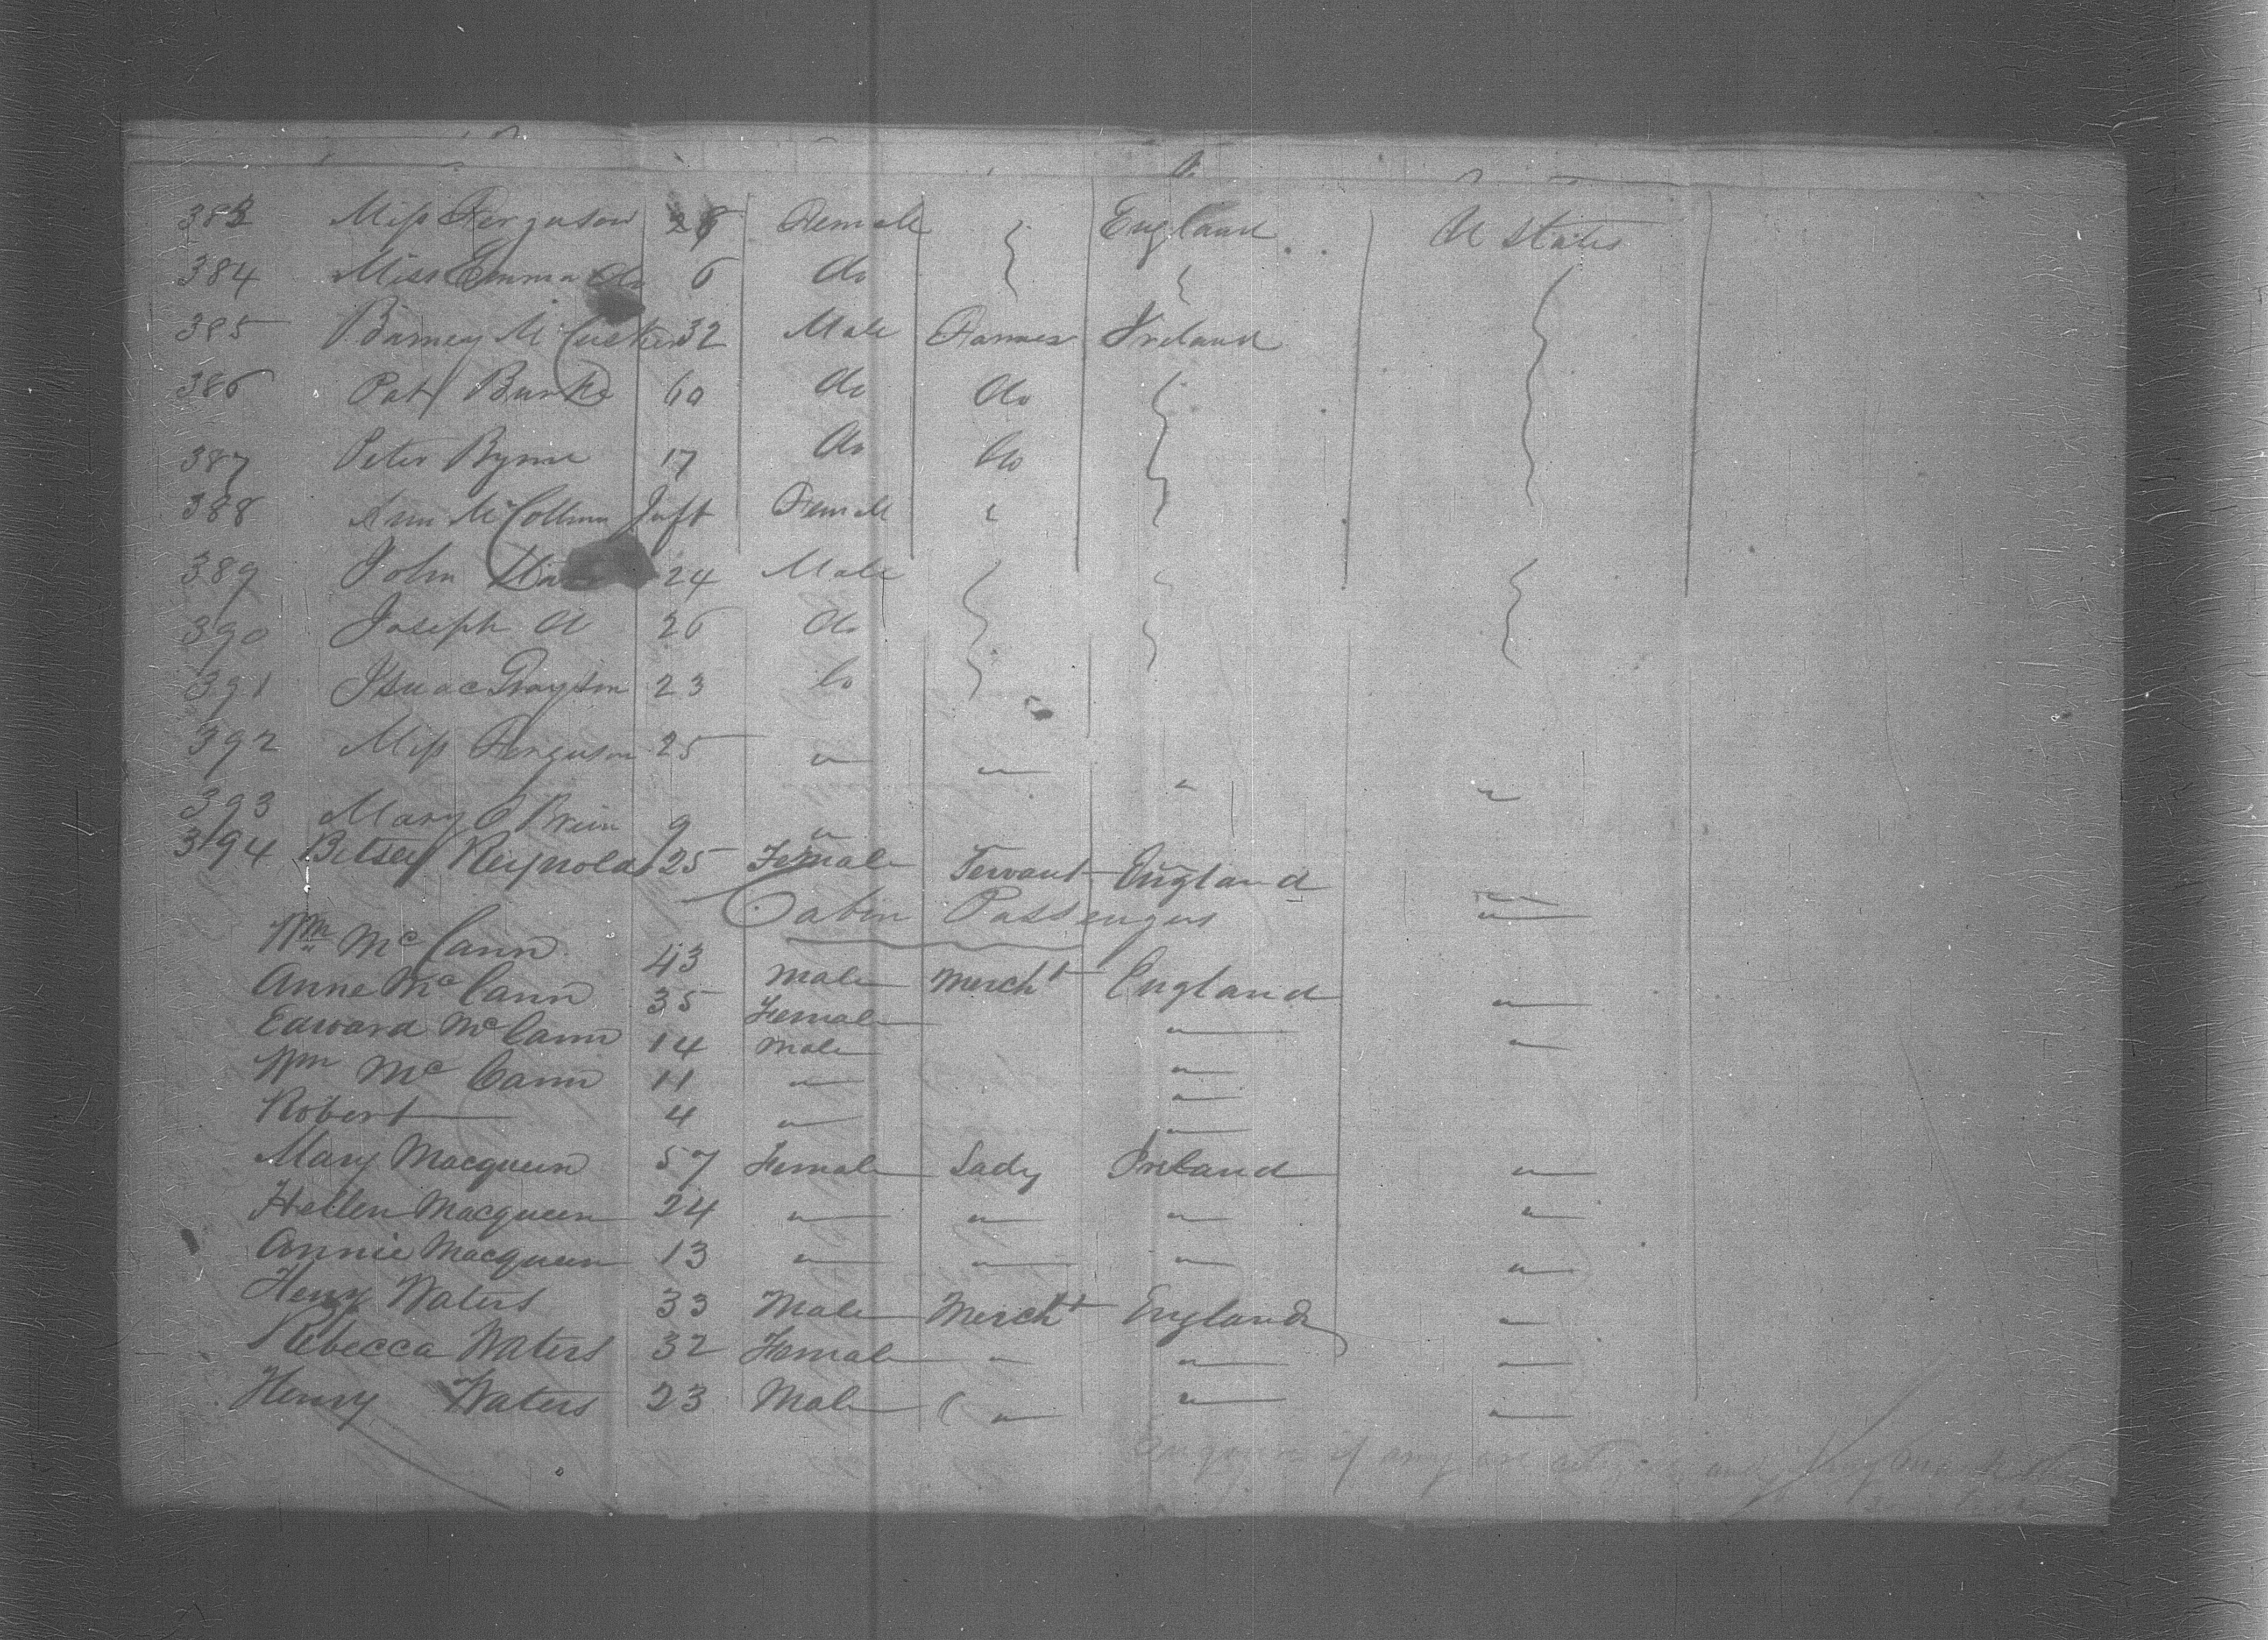 383 Miss Ferguson 28 Female England U States
384 Miss Emma do 6 do
385 Barney McCusker 32 Male Farmer Ireland
386 Pat Burke 60 do do
387 Peter Byrne 17 do do
388 Ann McCollum Inft Female "
389 John 24 Male
390 Joseph 26 do
391 Isaac Grayson 23 do
392 Miss Ferguson 25 " " " "
393 Mary O Brien 9 "
394 Betsey Reynolds 25 Female Servant England "
Cabin Passengers "
Wm McCann 43 Male Mercht England "
Anne McCann 35 Female " "
Edward McCann 14 Male "
Wm McCann 11 " "
Robert 4 " "
Mary Macqueen 57 Female Lady Ireland "
Hellen Macqueen 24 " " " "
Annie Macqueen 13 " " " "
Henry Waters 33 Male Mercht England "
Rebecca Waters 32 Female " " "
Henry Waters 23 Male " " "
if any are